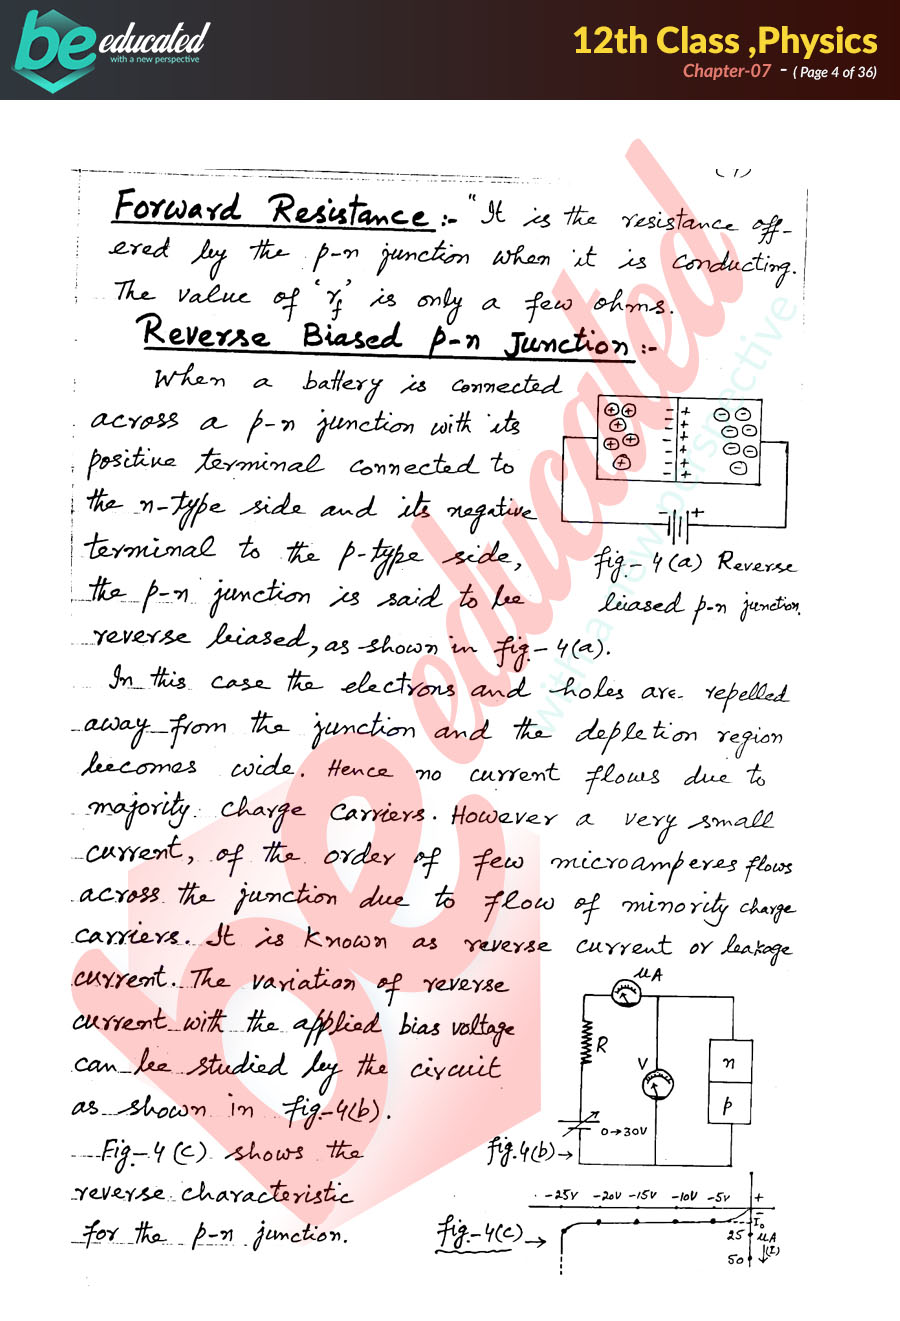 be educated
with a new perspective
12th Class ,Physics
Chapter-07 - ( Page 4 of 36)
Forward Resistance :- "It is the resistance off-
ered by the p-n junction when it is conducting.
The value of 'rf' is only a few ohms.
Reverse Biased p-n Junction :-
When a battery is connected
across a p-n junction with its
positive terminal connected to
the n-type side and its negative
terminal to the p-type side,
the p-n junction is said to be
reverse biased, as shown in fig.- 4(a).
fig.- 4(a) Reverse
biased p-n junction.
In this case the electrons and holes are repelled
away from the junction and the depletion region
becomes wide. Hence no current flows due to
majority charge carriers. However a very small
current, of the order of few microamperes flows
across the junction due to flow of minority charge
carriers. It is known as reverse current or leakage
current. The variation of reverse
current with the applied bias voltage
can be studied by the circuit
as shown in fig.-4(b).
μA
R
V
n
p
0→30V
fig.4(b)→
Fig.-4(c) shows the
reverse characteristic
for the p-n junction.
-25V -20V -15V -10V -5V +
I₀
25 μA
50 (I)
fig.-4(c)→
be educated
with a new perspective